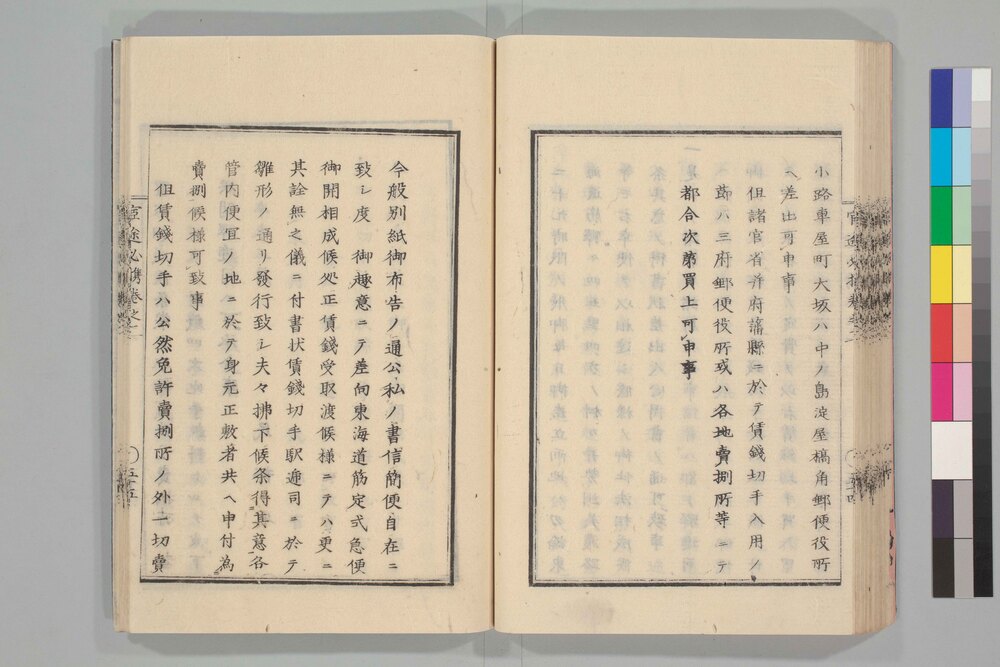 小路車屋町大坂ハ中ノ島淀屋橋角郵便役所
ヘ差出可申事
但諸官省并府藩縣ニ於テ賃錢切手入用ノ
節ハ三府郵便役所或ハ各地賣捌所等ニテ
都合次第買上可申事
今般別紙御布告ノ通公私ノ書信簡便自在ニ
致レ度 御趣意ニテ差向東海道筋定式急便
御開相成候処正賃錢受取渡候様ニテハ更ニ
其詮無之儀ニ付書状賃錢切手駅逓司ニ於テ
雛形ノ通リ發行致レ夫々拂下候条得其意各
管内便宜ノ地ニ於テ身元正敷者共ヘ申付為
賣捌候様可致事
但賃錢切手ハ公然免許賣捌所ノ外一切賣
官途必携巻之
五十五